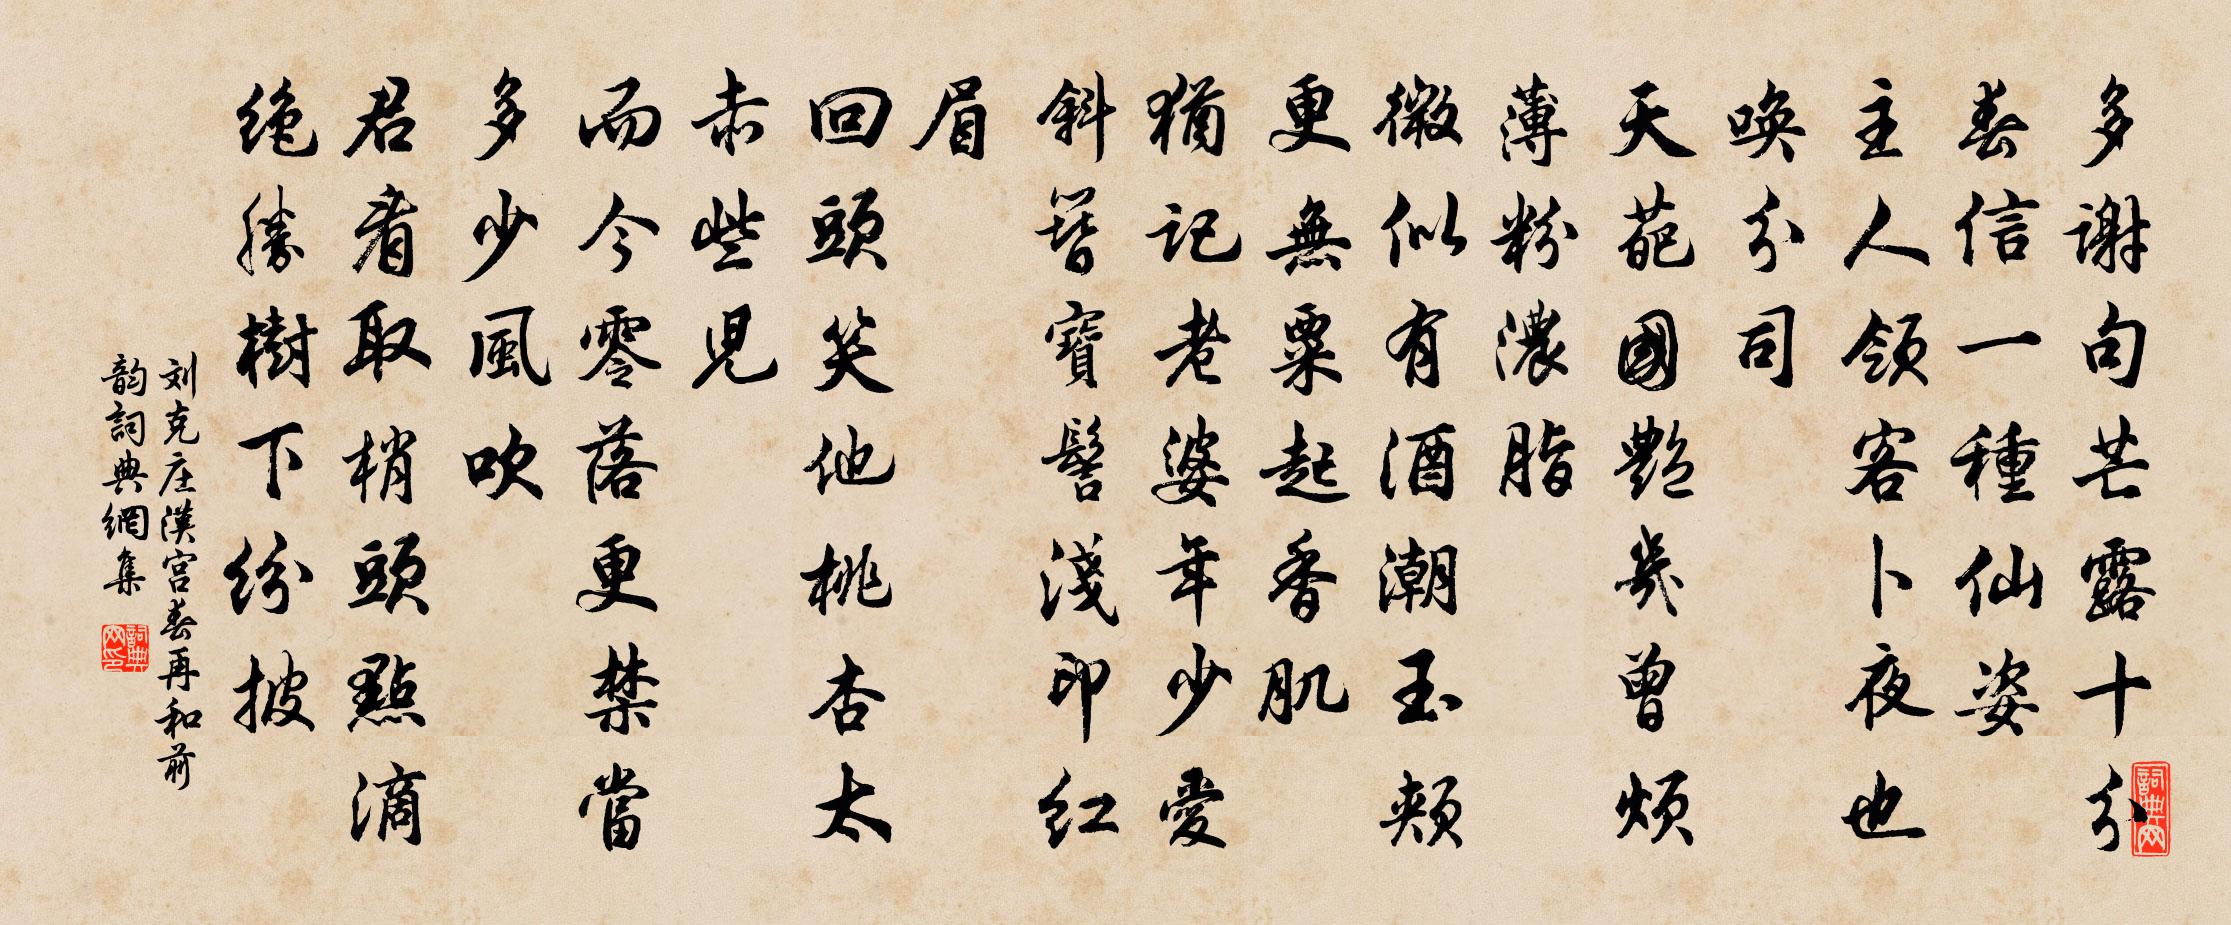 多謝句芒露十分
春信一種仙姿
主人領客卜夜也
喚分司
天葩國艷幾曾煩
薄粉濃脂
微似有酒潮玉頰
更無粟起香肌
猶記老婆年少愛
斜簪寶髻淺印紅
眉
回頭笑他桃杏太
赤些児
而今零落更禁當
多少風吹
君看取梢頭點滴
绝勝樹下紛披
刘克庄漢宫春再和前
韵詞典網集
詞典网
詞典网印